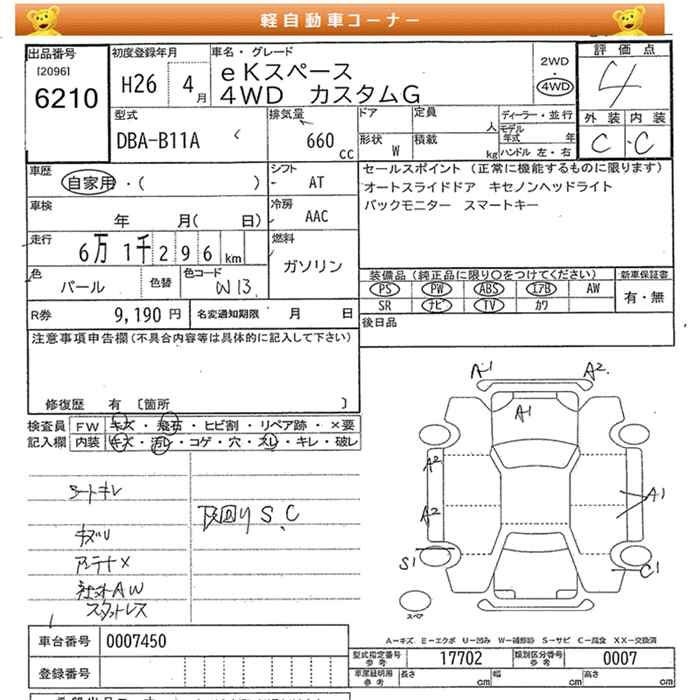 軽自動車コーナー
出品番号
[2096]
6210
初度登録年月
H26 4月
車名・グレード
eKスペース
4WD カスタムG
2WD
・
4WD
評価点
4
外装 内装
C・C
型式
DBA-B11A
排気量
660 cc
ドア
定員
人
形状
W
積載
kg
ディーラー・並行
モデル年式 年
ハンドル 左・右
車歴
自家用・( )
シフト
AT
車検
年 月( 日)
冷房
AAC
走行
6万1千296km
燃料
ガソリン
色
パール
色替
色コード
W13
R券
9,190円
名変通知期限 月 日
セールスポイント (正常に機能するものに限ります)
オートスライドドア キセノンヘッドライト
バックモニター スマートキー
装備品(純正品に限り○をつけてください)
PS PW ABS エアB AW
SR ナビ TV カワ
新車保証書
有・無
後日品
注意事項申告欄(不具合内容等は具体的に記入して下さい)
修復歴 有 〔箇所 〕
検査員記入欄
FW キズ・飛石・ヒビ割・リペア跡・×要
内装 キズ・汚レ・コゲ・穴・スレ・キレ・破レ
シートキレ
キズU
アンテナ×
社外AW
スタットレス
下回りS.C
A1
A2
A1
A2
A2
A1
S1
C1
スペア
A－キズ E－エクボ U－凹み W－補修跡 S－サビ C－腐食 XX－交換済
車台番号 0007450
登録番号
型式指定番号 参考 17702
類別区分番号 参考 0007
車庫証明用 参考 長さ cm 幅 cm 高さ cm